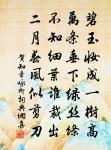 碧玉妝成一樹高
萬條垂下綠絲絛
不知細葉誰裁出
二月春風似剪刀
賀知章詠柳詞典網